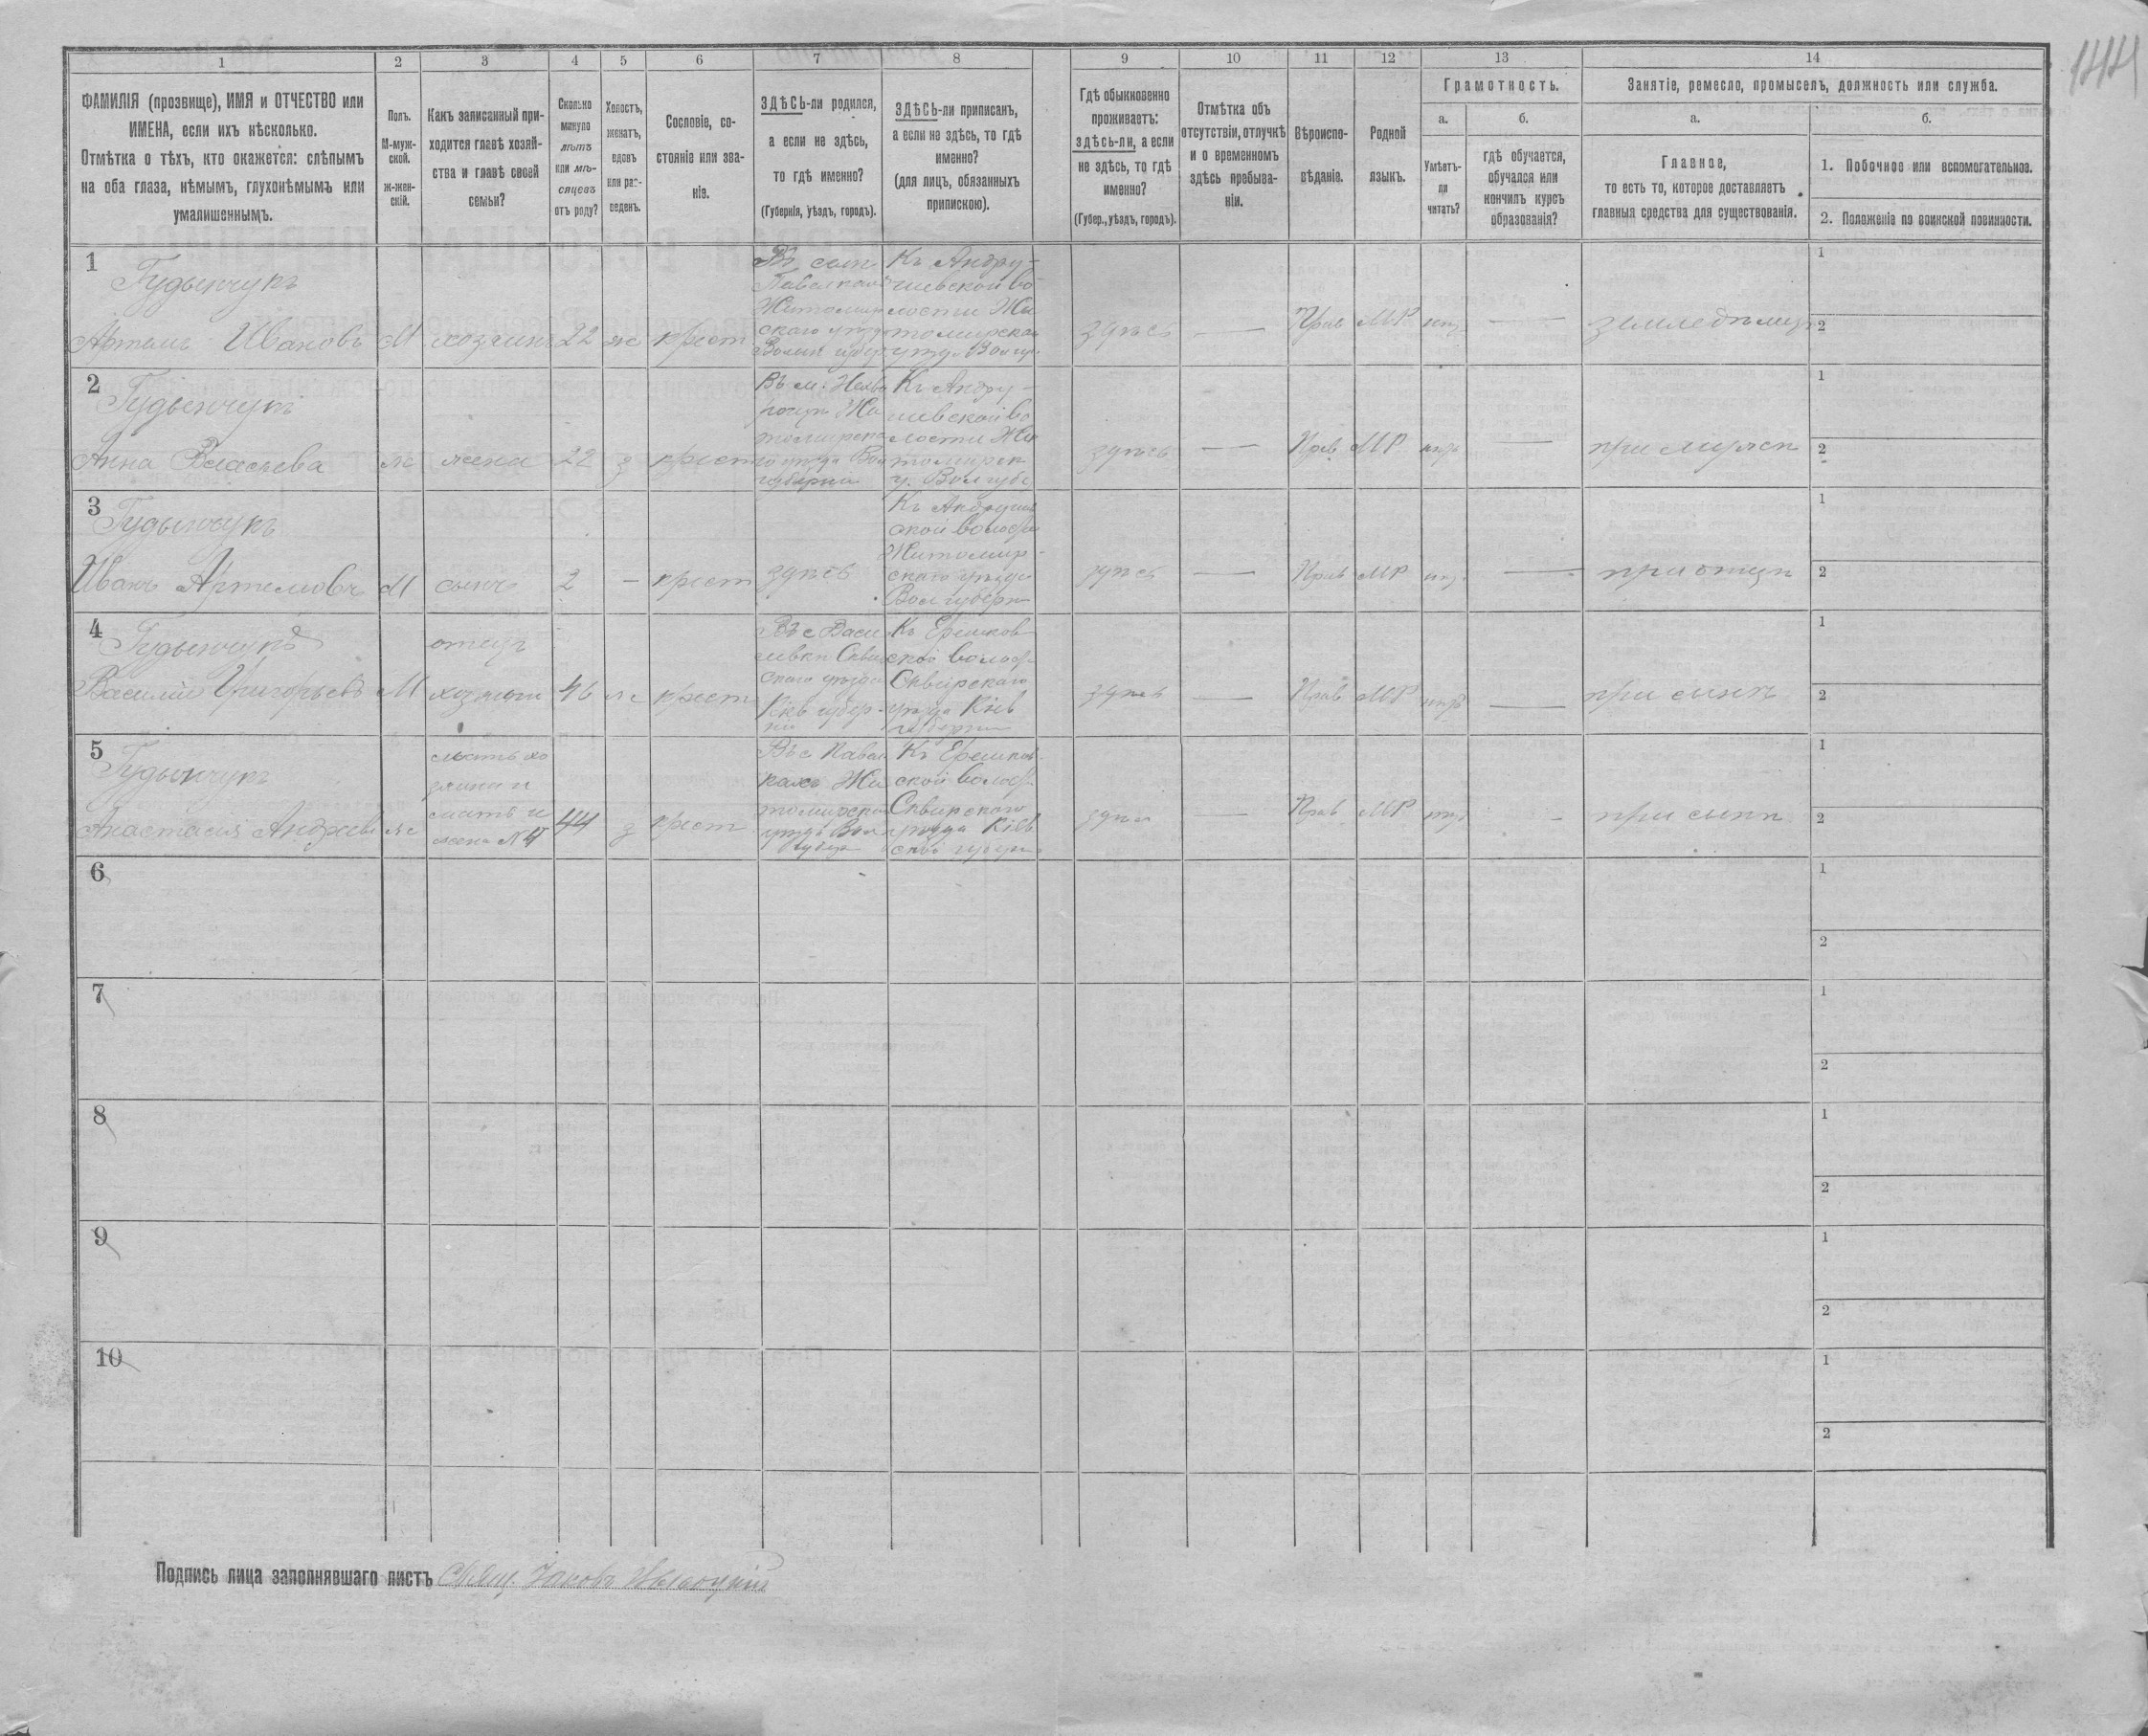 144
1
2
3
4
5
6
7
8
9
10
11
12
13
14
ФАМИЛІЯ (прозвище), ИМЯ и ОТЧЕСТВО или
ИМЕНА, если ихъ нѣсколько.
Отмѣтка о тѣхъ, кто окажется: слѣпымъ
на оба глаза, нѣмымъ, глухонѣмымъ или
умалишеннымъ.
Полъ.
М-муж-
ской.
ж-жен-
скій.
Какъ записанный при-
ходится главѣ хозяй-
ства и главѣ своей
семьи?
Сколько
минуло
лѣтъ
или мѣ-
сяцевъ
отъ роду?
Холостъ,
женатъ,
вдовъ
или раз-
веденъ.
Сословіе, со-
стояніе или зва-
ніе.
ЗДѢСЬ-ли родился,
а если не здѣсь,
то гдѣ именно?
(Губернія, уѣздъ, городъ).
ЗДѢСЬ-ли приписанъ,
а если не здѣсь, то гдѣ
именно?
(для лицъ, обязанныхъ
припискою).
Гдѣ обыкновенно
проживаетъ:
здѣсь-ли, а если
не здѣсь, то гдѣ
именно?
(Губер., уѣздъ, городъ).
Отмѣтка объ
отсутствіи, отлучкѣ
и о временномъ
здѣсь пребыва-
ніи.
Вѣроиспо-
вѣданіе.
Родной
языкъ.
Грамотность.
а.
Умѣетъ-
ли
читать?
б.
гдѣ обучается,
обучался или
кончилъ курсъ
образованія?
Занятіе, ремесло, промыселъ, должность или служба.
а.
Главное,
то есть то, которое доставляетъ
главныя средства для существованія.
б.
1. Побочное или вспомогательное.
2. Положеніе по воинской повинности.
1
Гудынчукъ
Артемъ Ивановъ М хозяинъ 22 ж крест
Къ Андру-
шевской во
лости Жи
томирскаго
здѣсь — Прав МР — земледѣлецъ
1
2
2
Гудынчукъ
Анна Власьева ж жена 22 з крест
Къ Андру-
шевской во
лости Жи
томирск
у. Вол губ
здѣсь — Прав МР — при мужѣ
1
2
3
Гудынчукъ
Иванъ Артемовъ М сынъ 2 — крест здѣсь
Житомир-
скаго уѣзда
Вол губерн
здѣсь — Прав МР — при отцѣ
1
2
4
Гудынчукъ
отецъ
Василій Григорьевъ М хозяина 46 ж крест
Въ с Васи
левкѣ Сквир
скаго уѣзда
Кіев губер-
ніи
ской волос
Сквирскаго
уѣзда Кіев
губерніи
здѣсь — Прав МР — при сынѣ
1
2
5
Гудынчукъ
мать хо
зяина и
жена №4
Анастасія Андреев ж 44 з крест
ской волос
Сквирскаго
уѣзда Кіев
ской губерн
здѣсь — Прав МР - при сынѣ
1
2
6
1
2
7
1
2
8
1
2
9
1
2
10
1
2
Подпись лица заполнявшаго листъ Свящ. Іаковъ